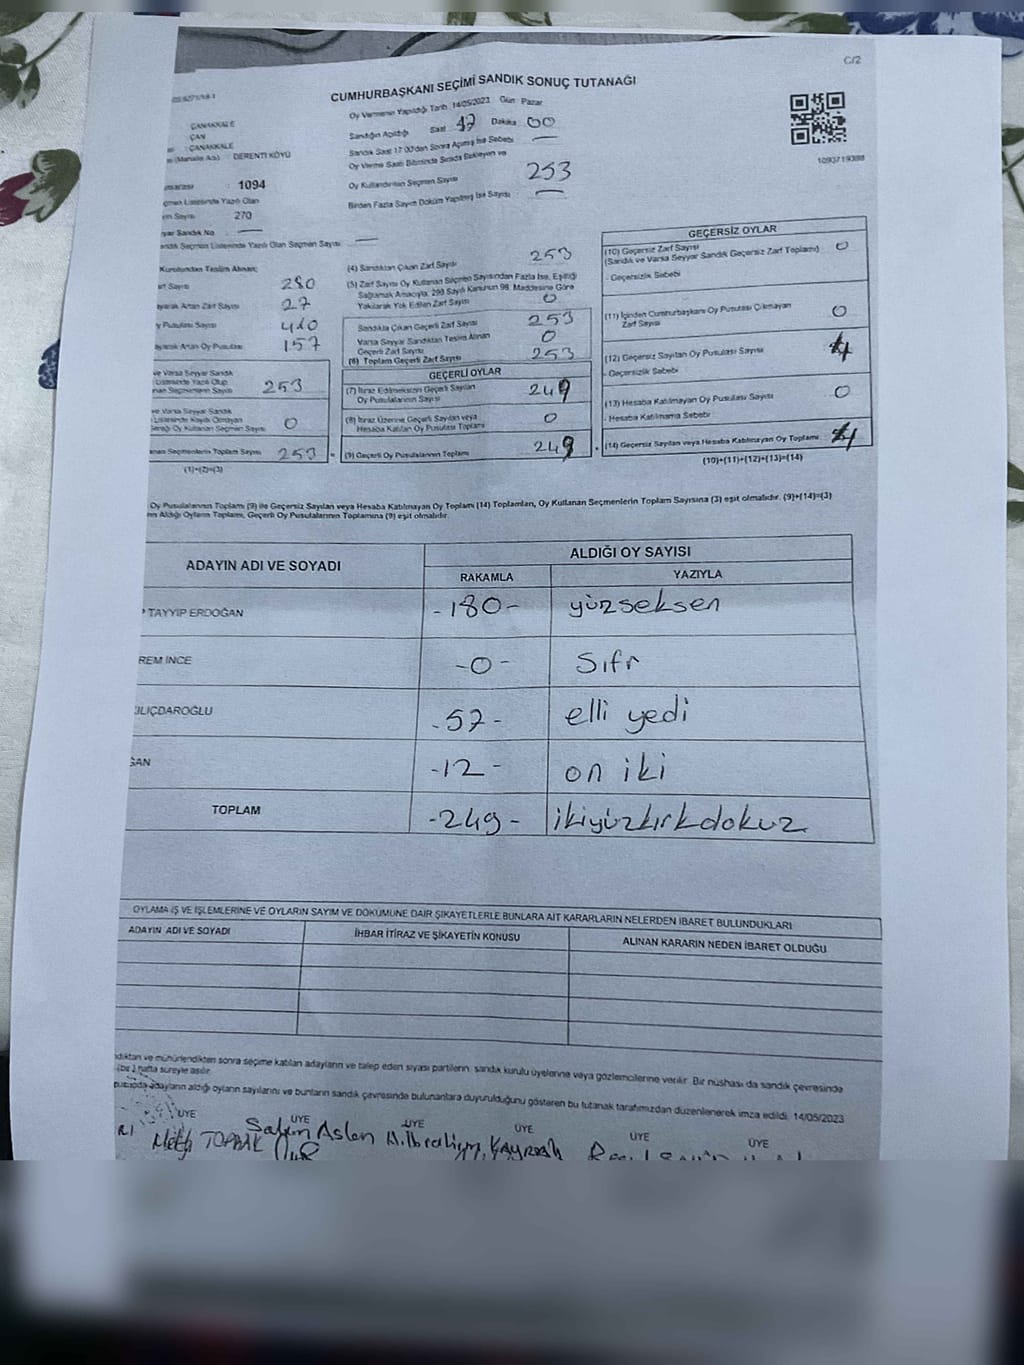 C/2
CUMHURBAŞKANI SEÇİMİ SANDIK SONUÇ TUTANAĞI
Oy Vermenin Yapıldığı Tarih 14/05/2023 Gün Pazar
ÇANAKKALE
ÇAN
ÇANAKKALE
(Mahalle Adı) : DERENTİ KÖYÜ
Sandığın Açıldığı Saat 17 Dakika 00
Sandık Saat 17:00'dan Sonra Açılmış İse Sebebi —
Oy Verme Saati Bitiminde Sırada Bekleyen ve
Oy Kullandırılan Seçmen Sayısı 253
Birden Fazla Sayım Döküm Yapılmış İse Sayısı —
1093719388
: 1094
270
yar Sandık No —
andık Seçmen Listesinde Yazılı Olan Seçmen Sayısı —
Kurulundan Teslim Alınan;
arf Sayısı 280
ayarak Artan Zarf Sayısı 27
y Pusulası Sayısı 410
ayarak Artan Oy Pusulası 157
ve Varsa Seyyar Sandık
Listesinde Yazılı Olup
anan Seçmenlerin Sayısı 253
ve Varsa Seyyar Sandık
Listesinde Kaydı Olmayan
Gereği Oy Kullanan Seçmen Sayısı 0
anan Seçmenlerin Toplam Sayısı 253
(1)+(2)=(3)
(4) Sandıktan Çıkan Zarf Sayısı 253
(5) Zarf Sayısı Oy Kullanan Seçmen Sayısından Fazla İse, Eşitliği
Sağlamak Amacıyla, 298 Sayılı Kanunun 98. Maddesine Göre
Yakılarak Yok Edilen Zarf Sayısı 0
Sandıkta Çıkan Geçerli Zarf Sayısı 253
Varsa Seyyar Sandıktan Teslim Alınan
Geçerli Zarf Sayısı 0
(6) Toplam Geçerli Zarf Sayısı 253
GEÇERLİ OYLAR
(7) İtiraz Edilmeksizin Geçerli Sayılan
Oy Pusulalarının Sayısı 249
(8) İtiraz Üzerine Geçerli Sayılan veya
Hesaba Katılan Oy Pusulası Toplamı 0
(9) Geçerli Oy Pusulalarının Toplamı 249
GEÇERSİZ OYLAR
(10) Geçersiz Zarf Sayısı 0
(Sandık ve Varsa Seyyar Sandık Geçersiz Zarf Toplamı)
- Geçersizlik Sebebi
(11) İçinden Cumhurbaşkanı Oy Pusulası Çıkmayan
Zarf Sayısı 0
(12) Geçersiz Sayılan Oy Pusulası Sayısı 4
- Geçersizlik Sebebi
(13) Hesaba Katılmayan Oy Pusulası Sayısı 0
- Hesaba Katılmama Sebebi
(14) Geçersiz Sayılan veya Hesaba Katılmayan Oy Toplamı 4
(10)+(11)+(12)+(13)=(14)
Oy Pusulalarının Toplamı (9) ile Geçersiz Sayılan veya Hesaba Katılmayan Oy Toplamı (14) Toplamları, Oy Kullanan Seçmenlerin Toplam Sayısına (3) eşit olmalıdır. (9)+(14)=(3)
n Aldığı Oyların Toplamı, Geçerli Oy Pusulalarının Toplamına (9) eşit olmalıdır.
ADAYIN ADI VE SOYADI ALDIĞI OY SAYISI
RAKAMLA YAZIYLA
P TAYYIP ERDOĞAN -180- yüzseksen
REM İNCE -0- Sıfr
ILIÇDAROĞLU -57- elli yedi
ĞAN -12- on iki
TOPLAM -249- ikiyüzkırkdokuz
OYLAMA İŞ VE İŞLEMLERİNE VE OYLARIN SAYIM VE DÖKÜMÜNE DAİR ŞİKAYETLERLE BUNLARA AİT KARARLARIN NELERDEN İBARET BULUNDUKLARI
ADAYIN ADI VE SOYADI İHBAR İTİRAZ VE ŞİKAYETİN KONUSU ALINAN KARARIN NEDEN İBARET OLDUĞU
ndıktan ve mühürlendikten sonra seçime katılan adayların ve talep eden siyasi partilerin, sandık kurulu üyelerine veya gözlemcilerine verilir. Bir nüshası da sandık çevresinde
(bir) hafta süreyle asılır.
adayların aldığı oyların sayılarını ve bunların sandık çevresinde bulunanlara duyurulduğunu gösteren bu tutanak tarafımızdan düzenlenerek imza edildi. 14/05/2023
ÜYE ÜYE ÜYE ÜYE ÜYE ÜYE
TOPRAK Aslan